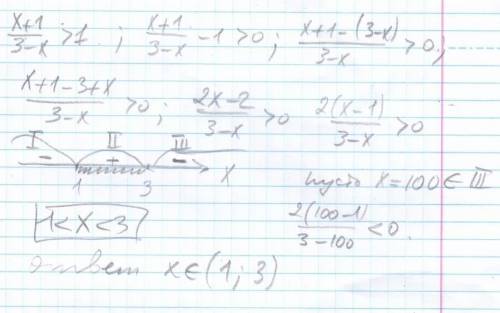 x+1/3-x >1 ; x+1/3-x -1>0 ; x+1-(3-x)/3-x >0 ;
x+1-3+x/3-x >0 ; 2x-2/3-x >0 2(x-1)/3-x >0
I II III
- + - x
1 3
пусть x=100 ∈ III
2(100-1)/3-100 <0.
1<x<3
ответ x∈(1;3)